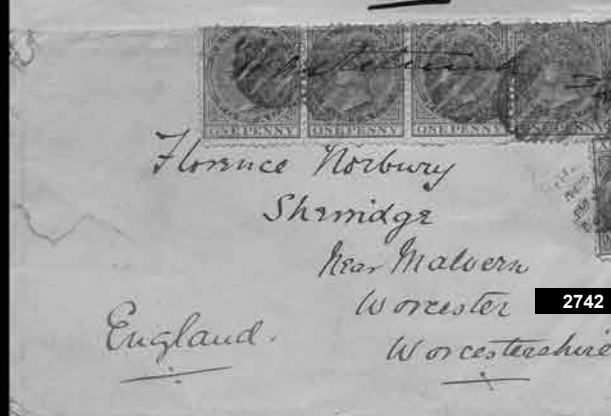 ONE PENNY ONE PENNY ONE PENNY ONE PENNY
Florence Norbury
Sherridge
Near Malvern
Worcester
2742
England.
Worcestershire